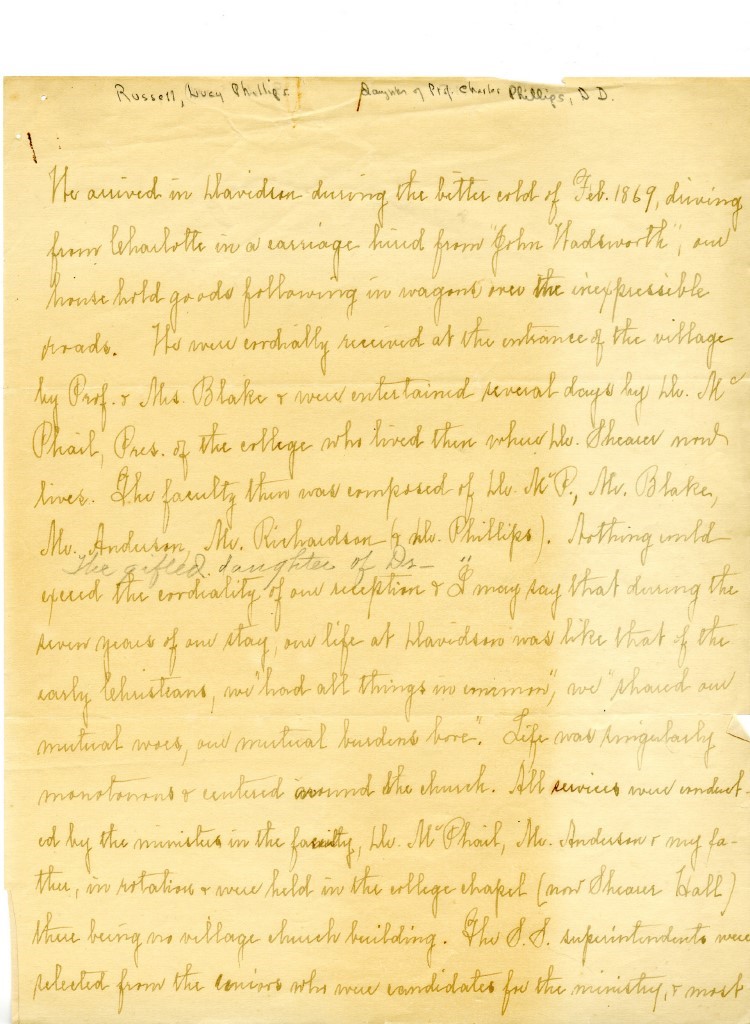 Russell, Lucy Phillips   Daughter of Prof. Charles Phillips, D D.
1
We arrived in Davidson during the bitter cold of Feb. 1869, driving
from Charlotte in a carriage hired from "John Wadsworth", our
house hold goods following in wagons over the inexpressible
roads. We were cordially received at the entrance of the village
by Prof. & Mrs. Blake & were entertained several days by Dr. Mc
Phail, Pres. of the college who lived then where Dr. Shearer now
lives. The faculty then was composed of Dr. McP., Mr. Blake,
Mr. Anderson, Mr. Richardson (& Dr. Phillips). Nothing could
The gifted daughter of Dr—
exceed the cordiality of our reception & "I may say that during the
seven years of our stay, our life at Davidson was like that of the
early Christians, we "had all things in common", we "shared our
mutual woes, our mutual burdens bore". Life was singularly
monotonous & centered around the church. All services were conduct-
ed by the ministers in the faculty, Dr. McPhail, Mr. Anderson & my fa-
ther, in rotation & were held in the college chapel (now Shearer Hall)
there being no village church building. The S.S. superintendents were
selected from the seniors who were candidates for the ministry, & most